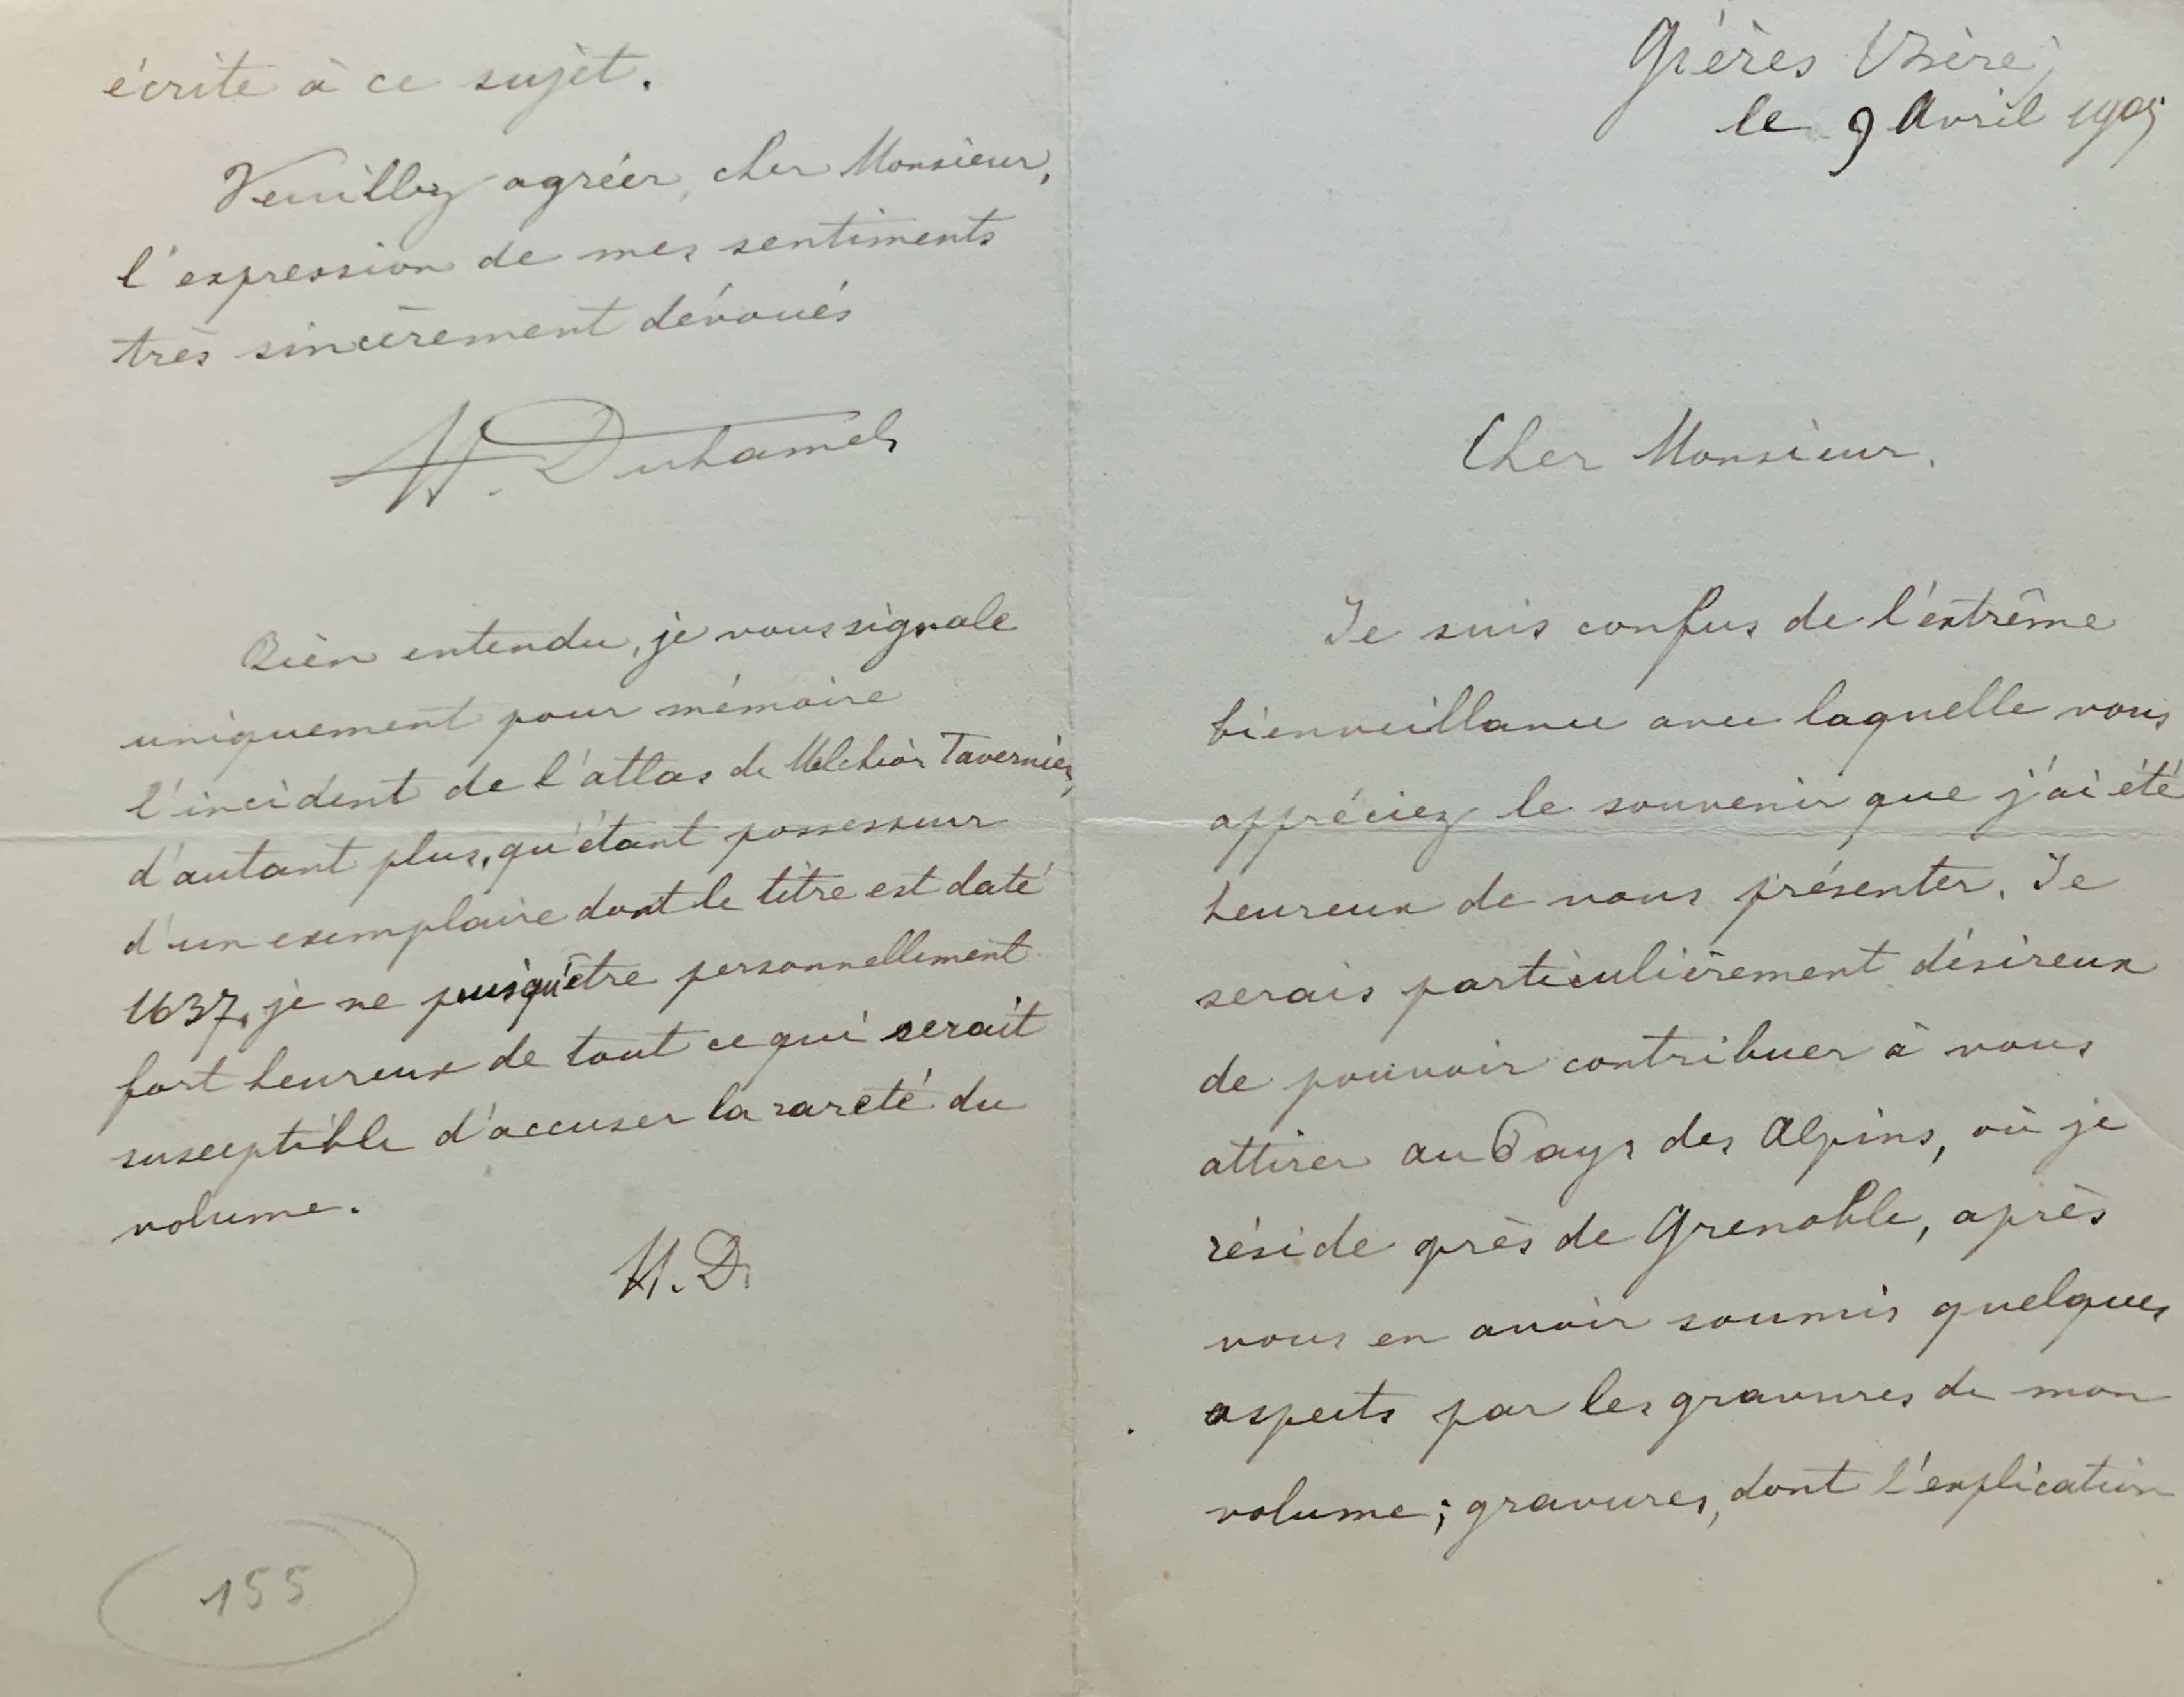 Gières (Isère)
le 9 Avril 1905
Cher Monsieur.
Je suis confus de l'extrême
bienveillance avec laquelle vous
appréciez le souvenir que j'ai été
heureux de vous présenter. Je
serais particulièrement désireux
de pouvoir contribuer à vous
attirer au Pays des Alpins, où je
réside près de Grenoble, après
vous en avoir soumis quelques
aspects par les gravures de mon
volume; gravures, dont l'explication
écrite à ce sujet.
Veuillez agréer, cher Monsieur,
l'expression de mes sentiments
très sincèrement dévoués
H. Duhamel
Bien entendu, je vous signale
uniquement pour mémoire
l'incident de l'atlas de Melchior Tavernier,
d'autant plus, qu'étant possesseur
d'un exemplaire dont le titre est daté
1637, je ne puis qu'être personnellement
fort heureux de tout ce qui serait
susceptible d'accuser la rareté du
volume.
H. D.
155